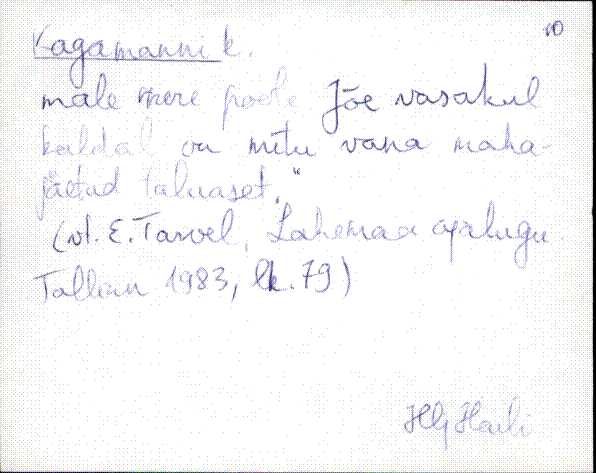 10
Kagamanni k.
male mere poole Jõe vasakul
kaldal on mitu vana maha-
jäetud taluaset."
(vt. E. Tarvel, Lahemaa ajalugu
Tallinn 1983, lk. 79)